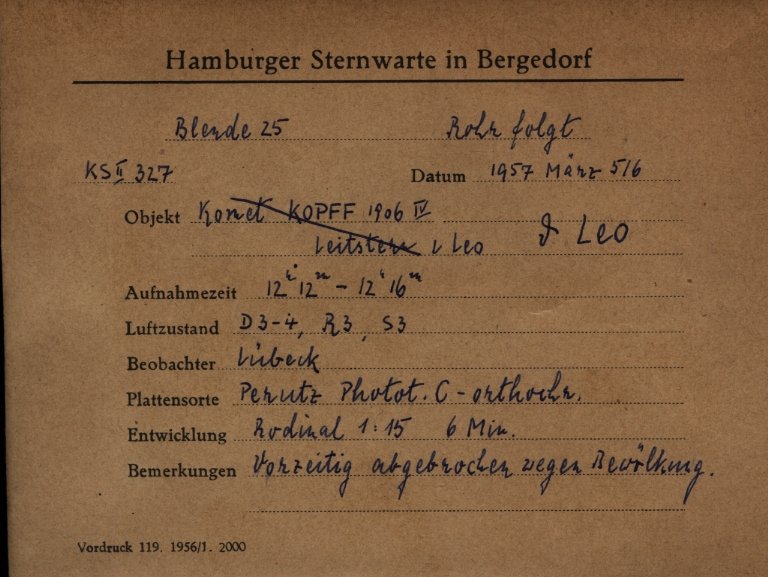 Hamburger Sternwarte in Bergedorf
Blende 25 Rohr folgt
KS II 327 Datum 1957 März 5/6
Objekt Komet KOPFF 1906 IV
Leitstern ι Leo ϑ Leo
Aufnahmezeit 12h 12m - 12h 16m
Luftzustand D3-4, R3, S3
Beobachter Lübeck
Plattensorte Perutz Photot. C-orthochr.
Entwicklung Rodinal 1:15 6 Min.
Bemerkungen Vorzeitig abgebrochen wegen Bewölkung.
Vordruck 119. 1956/1. 2000